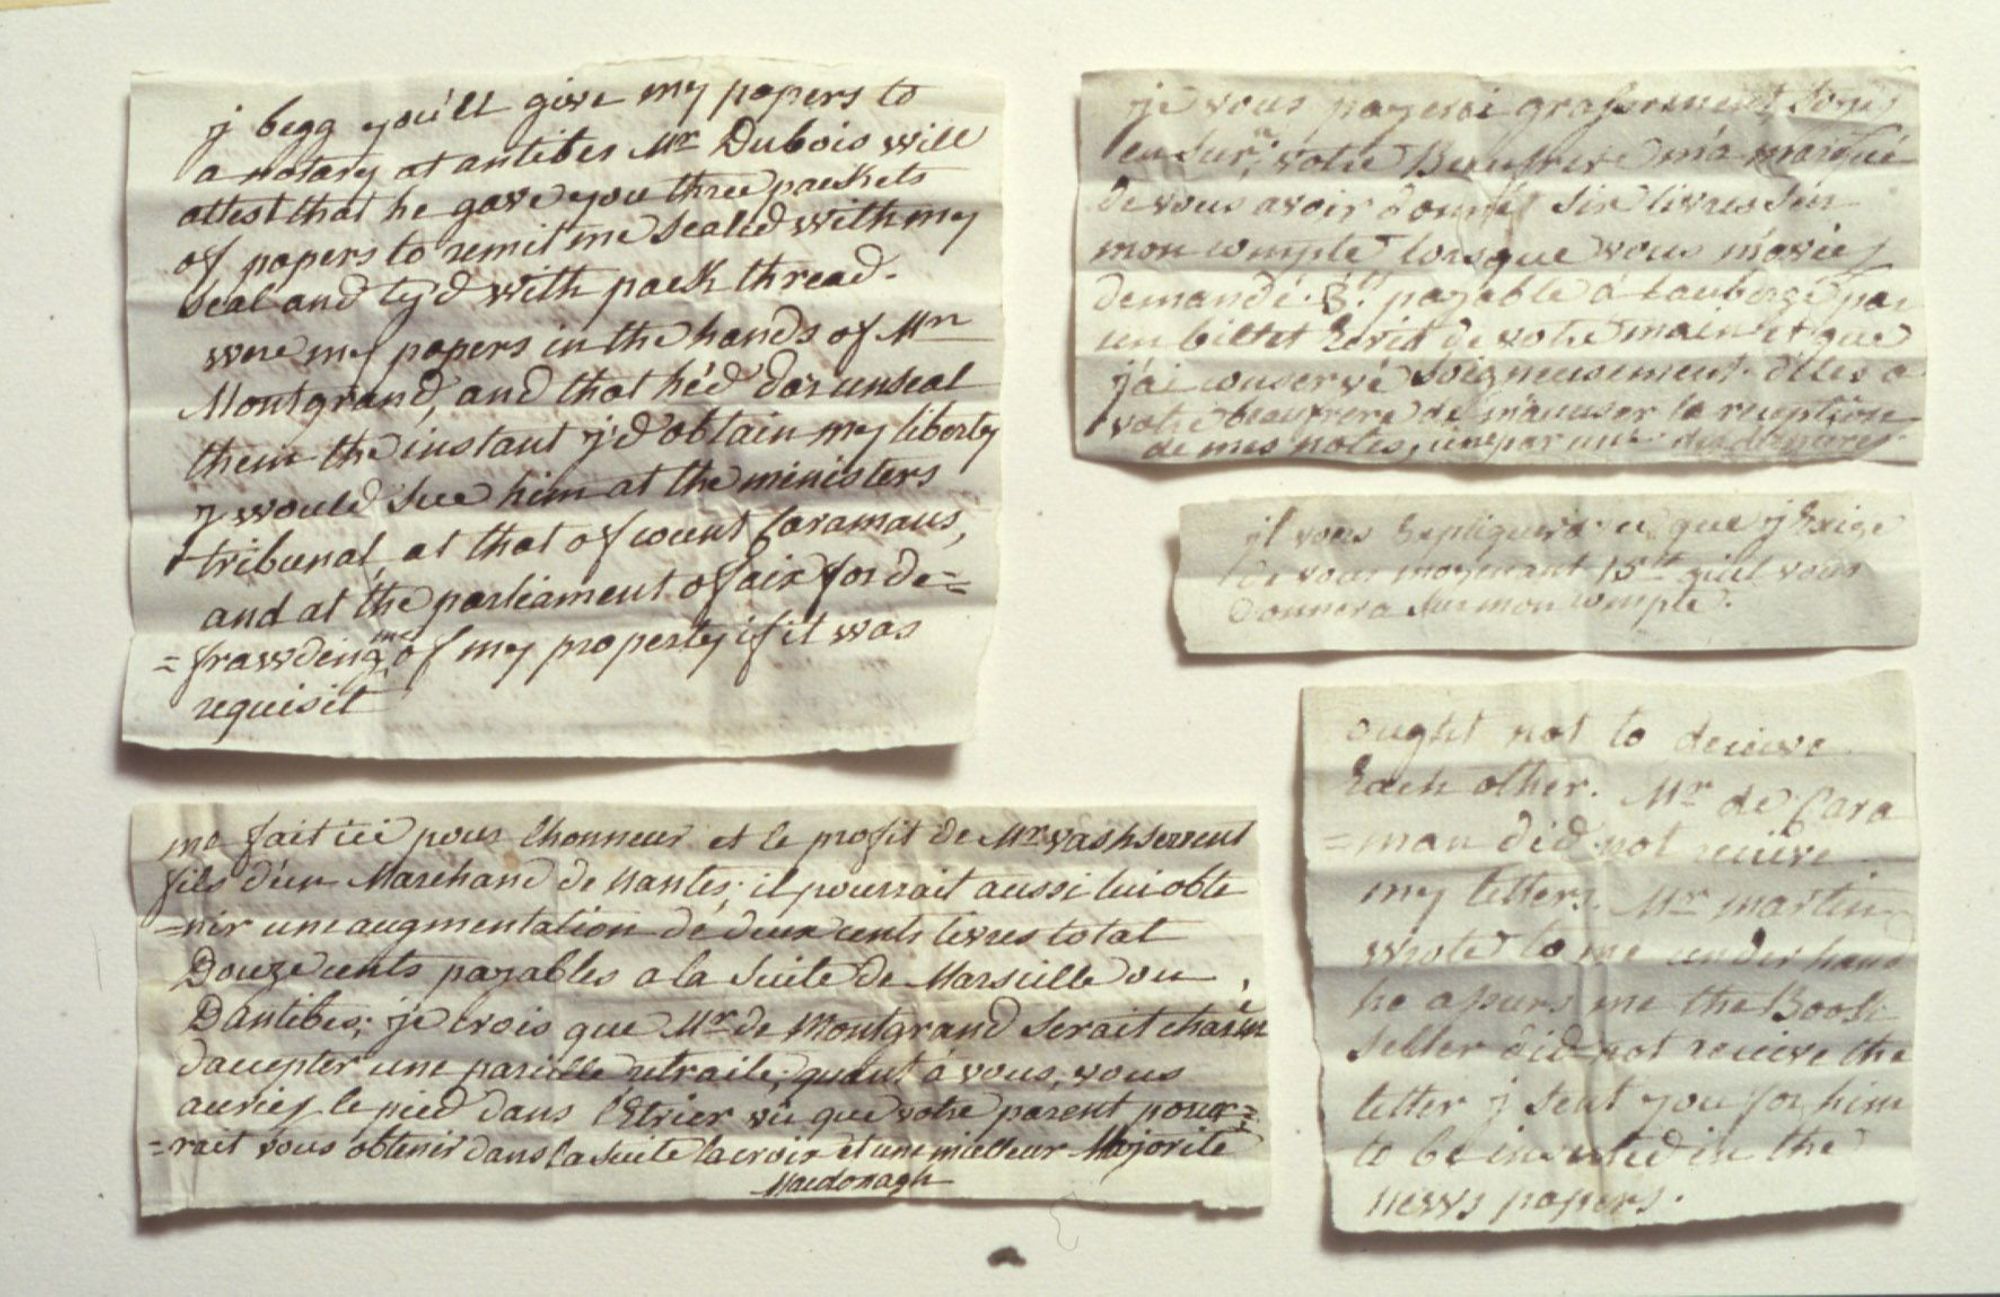 j begg you'll give my papers to
a notary at antibes Mr Dubois will
attest that he gave you three packets
of papers to remit me sealed with my
seal and ty'd with pack thread.
were my papers in the hands of Mr
Montgrand, and that he'd dar unseal
them the instant j'd obtain my liberty
j would sue him at the ministers
tribunal, at that of count Caramans,
and at the parliament of aix for de=
=frawding me of my property if it was
requisit
me fait ici pour l'honneur et le profit de Mr washserrent
fils d'un Marchand de Nantes; il pourrait aussi lui obte
=nir une augmentation de deux cents livres total
Douze cents payables a la suite de Marseille ou
Dantibes; je crois que Mr de Montgrand serait charmé
daccepter une pareille retraite; quant á vous, vous
auriez le pied dans l'Etrier vu que votre parent pour=
=rait vous obtenir dans la suite la croix et une meilleur Majorité
Macdonagh
je vous payerai grassement soyez
en sur, votre Beaufrere m'a marqué
de vous avoir donné six livres sur
mon compte lorsque vous m'aviez
demandé 3tt payable á l'auberge par
un billet Ecrit de votre main et que
j'ai conservé soigneusement. dites a
votre beaufrere de m'accuser la reception
de mes notes, une par une
jl vous Expliquera ce que j'Exige
de vous moyenant 15tt qu'il vous
donnera sur mon compte.
ought not to decieve
Each other. Mr de Cara
=man did not recieve
my letters. Mr martin
wrote to me under hand
he assurs me the Book
seller did not recieve the
letter j sent you for him
to be inserted in the
news papers.